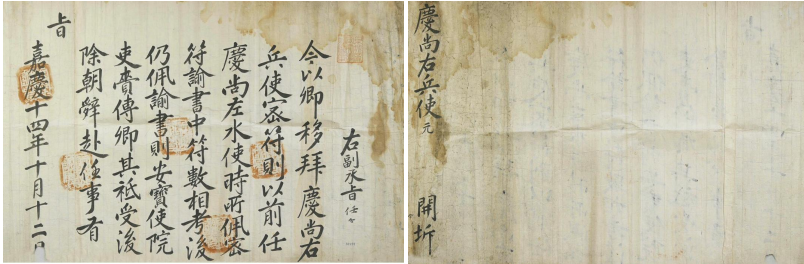 右副承旨 任
今以卿移拜慶尚右
兵使密符則以前任
慶尚左水使時所佩密
符諭書中符數相考後
仍佩諭書則安寶使院
吏賷傳卿其祗受後
除朝辭赴任事有
旨
嘉慶十四年十月十二日
慶尚右兵使 元 開坼